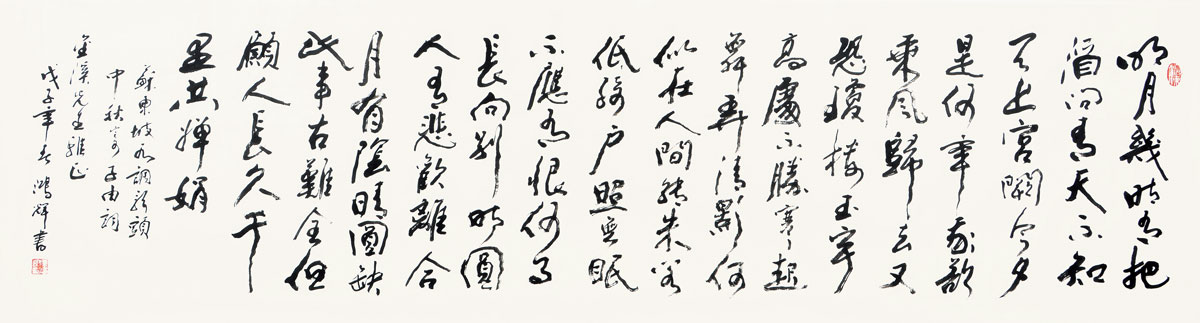 明月幾時有把
酒問青天不知
天上宮闕今夕
是何年我欲
乘風歸去又
恐瓊樓玉宇
高處不勝寒起
舞弄清影何
似在人間轉朱閣
低綺戶照無眠
不應有恨何事
長向別時圓
人有悲歡離合
月有陰晴圓缺
此事古難全但
願人長久千
里共嬋娟
蘇東坡水調歌頭
中秋寄子由詞
金溪先生雅正
戊子年春鴻輝書